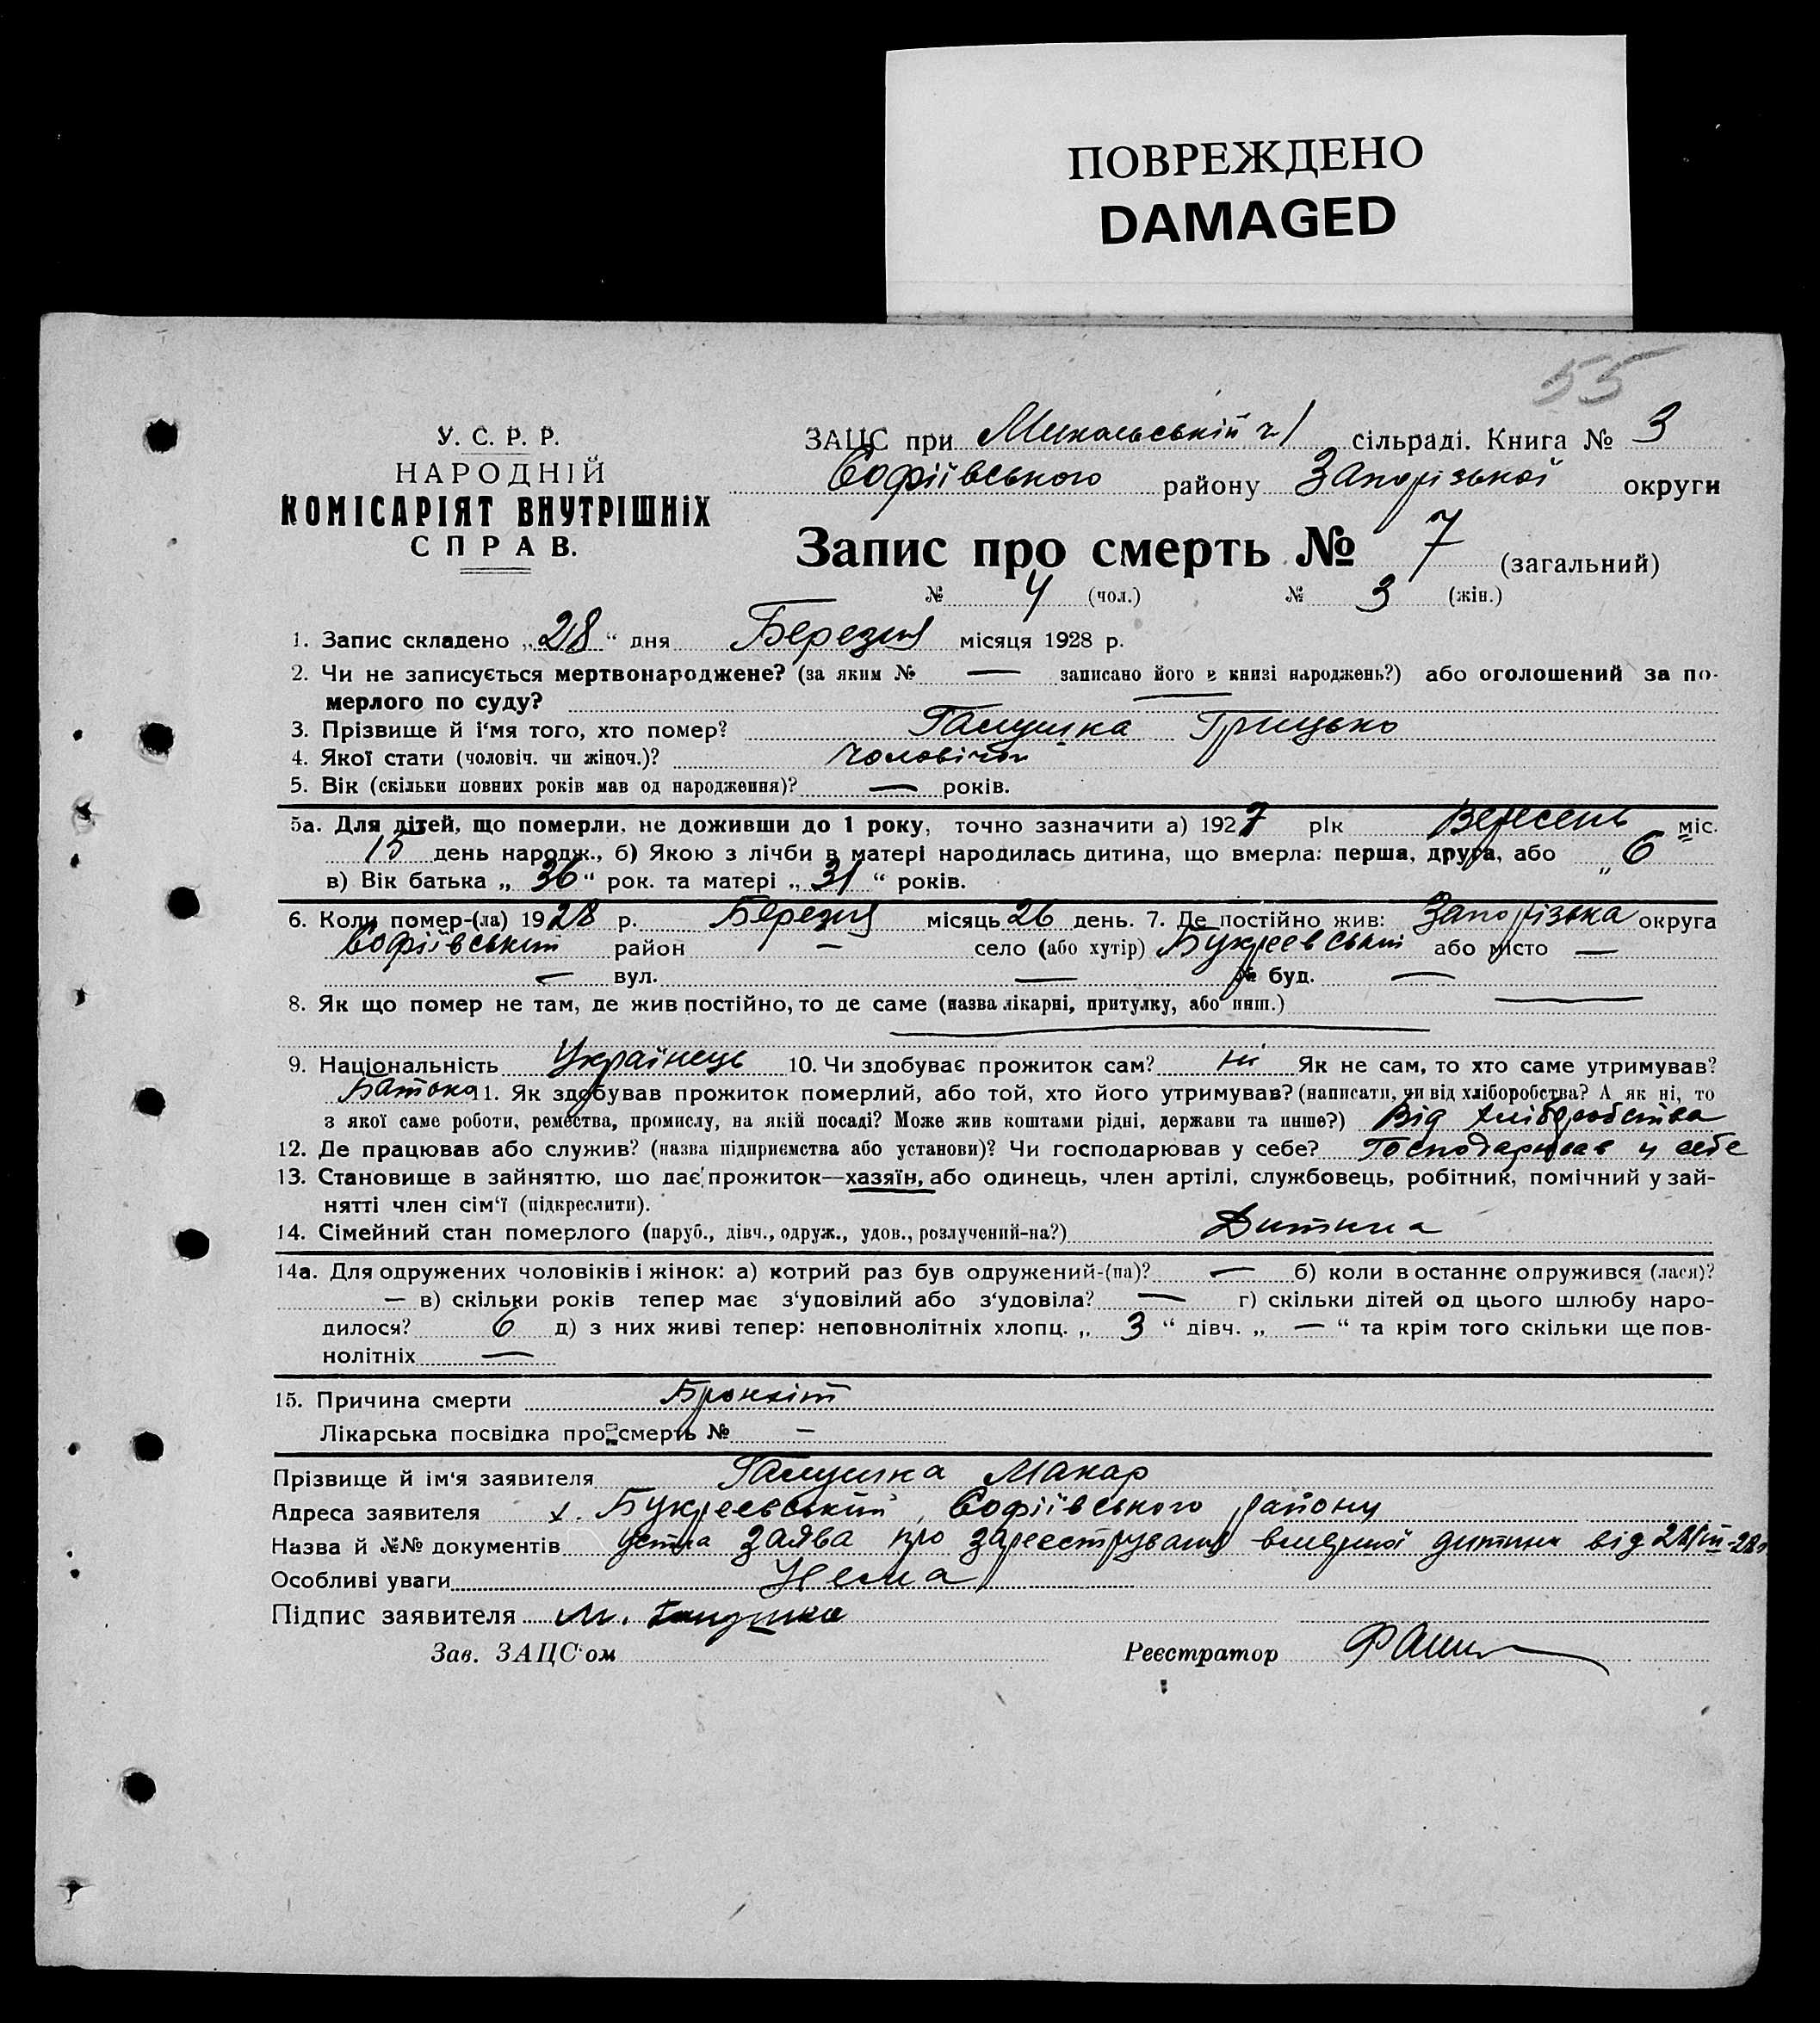 ПОВРЕЖДЕНО
DAMAGED
55
У. С. Р. Р.
НАРОДНІЙ
КОМІСАРІЯТ ВНУТРІШНІХ
СПРАВ.
ЗАЦС при Микольській №1 сільраді. Книга № 3
Софіївського району Запорізької округи
Запис про смерть № 7 (загальний)
№ 4 (чол.) № 3 (жін.)
1. Запис складено „28“ дня Березня місяця 1928 р.
2. Чи не записується мертвонароджене? (за яким № — записано його в книзі народжень?) або оголошений за по-
мерлого по суду? —
3. Прізвище й і'мя того, хто помер? Галушка Грицько
4. Якої стати (чоловіч. чи жіноч.)? Чоловічої
5. Вік (скільки повних років мав од народження)? — років.
5а. Для дітей, що померли, не доживши до 1 року, точно зазначити а) 1927 рік Вересень міс.
15 день народж., б) Якою з лічби в матері народилась дитина, що вмерла: перша, друга, або „6"
в) Вік батька „36“ рок. та матері „31“ років.
6. Коли помер-(ла) 1928 р. Березня місяць 26 день. 7. Де постійно жив: Запорізька округа
Софіївський район — село (або хутір) Букреєвський або місто —
— вул. — № буд. —
8. Як що помер не там, де жив постійно, то де саме (назва лікарні, притулку, або инш.) —
—
9. Національність Українець 10. Чи здобуває прожиток сам? ні Як не сам, то хто саме утримував?
Батько 11. Як здобував прожиток померлий, або той, хто його утримував? (написати, чи від хліборобства? А як ні, то
з якої саме роботи, ремества, промислу, на якій посаді? Може жив коштами рідні, держави та инше?) Від хліборобства
12. Де працював або служив? (назва підприємства або установи)? Чи господарював у себе? Господарював у себе
13. Становище в зайняттю, що дає прожиток—хазяїн, або одинець, член артілі, службовець, робітник, помічний у зай-
нятті член сім'ї (підкреслити).
14. Сімейний стан померлого (паруб., дівч., одруж., удов., розлучений-на?) Дитина
14а. Для одружених чоловіків і жінок: а) котрий раз був одружений-(на)? — б) коли в останнє одружився (лася)?
— в) скільки років тепер має з'удовілий або з'удовіла? — г) скільки дітей од цього шлюбу наро-
дилося? 6 д) з них живі тепер: неповнолітніх хлопц. „3“ дівч. „—“ та крім того скільки ще пов-
нолітніх —
15. Причина смерти Бронхіт
Лікарська посвідка про смерть № —
Прізвище й ім'я заявителя Галушка Макар
Адреса заявителя х. Букреєвський, Софіївського району
Назва й №№ документів устна заява про зареєстрування вмершої дитини від 28/III-28 р
Особливі уваги Нема
Підпис заявителя М. Галушка
Зав. ЗАЦС'ом Реєстратор